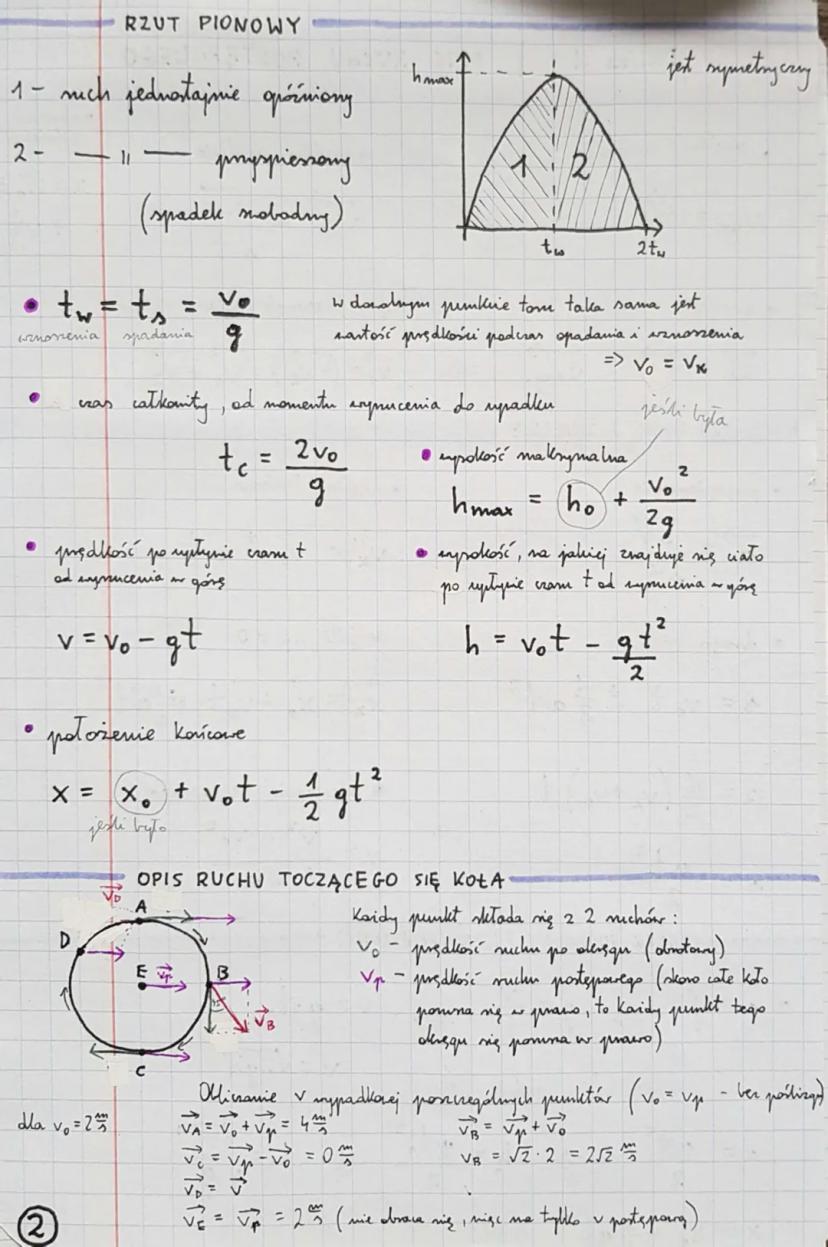 RZUT PIONOWY
1 - ruch jednostajnie opóźniony
2 - — 11 — przyspieszony
(spadek swobodny)
jest symetryczny
hmax
1 2
tw 2tw
• tw = ts = v₀/g
wznoszenia spadania
w dowolnym punkcie toru taka sama jest
wartość prędkości podczas opadania i wznoszenia
=> v₀ = vₖ
• czas całkowity, od momentu wyrzucenia do upadku
tc = 2v₀/g
jeśli była
• wysokość maksymalna
hmax = h₀ + v₀²/2g
• prędkość po upływie czasu t
od wyrzucenia w górę
v = v₀ - gt
• wysokość, na jakiej znajduje się ciało
po upływie czasu t od wyrzucenia w górę
h = v₀t - gt²/2
• położenie końcowe
x = x₀ + v₀t - 1/2 gt²
jeśli było
OPIS RUCHU TOCZĄCEGO SIĘ KOŁA
v⃗D
A
D
E v⃗p B
v⃗B
C
Każdy punkt składa się z 2 ruchów:
v₀ - prędkość ruchu po okręgu (obrotowy)
vp - prędkość ruchu postępowego (skoro całe koło
porusza się w prawo, to każdy punkt tego
okręgu się porusza w prawo)
Obliczanie v wypadkowej poszczególnych punktów (v₀ = vp - bez poślizgu)
dla v₀ = 2 m/s
v⃗A = v⃗₀ + v⃗p = 4 m/s
v⃗C = v⃗p - v⃗₀ = 0 m/s
v⃗D = v⃗
v⃗E = v⃗p = 2 m/s (nie obraca się, więc ma tylko v postępową)
v⃗B = v⃗p + v⃗₀
vB = √2 · 2 = 2√2 m/s
2